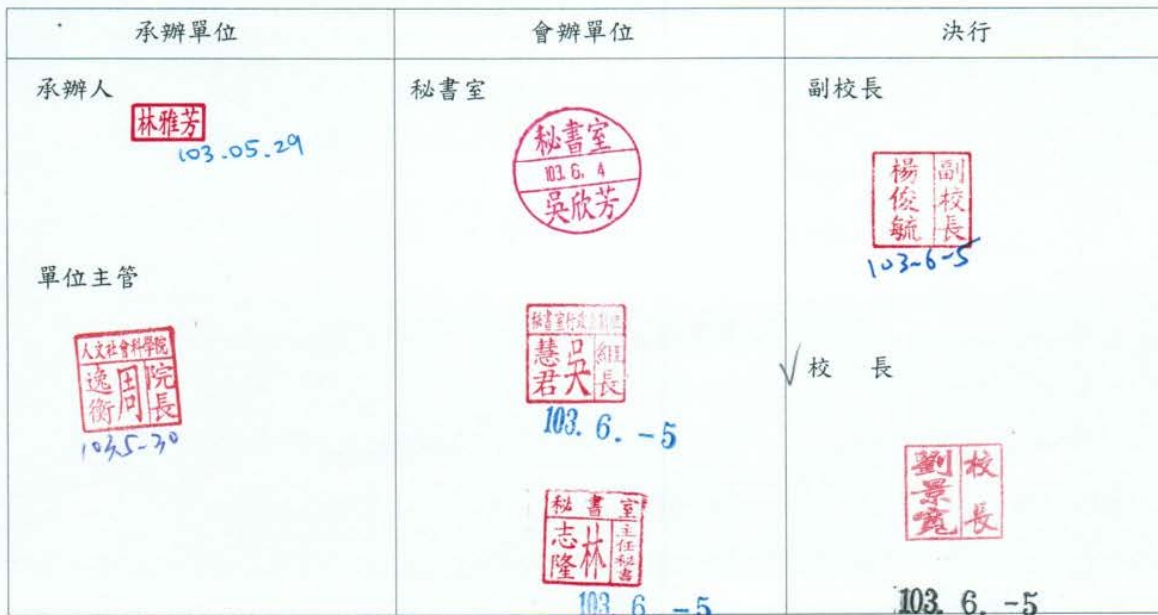 承辦單位
會辦單位
決行
承辦人
林雅芳
103.05.29
單位主管
人文社會科學院
院長
周逸衡
103.5-30
秘書室
秘書室
103.6.4
吳欣芳
秘書室行政
組長
吳慧君
103.6.-5
秘書室
主任秘書
林志隆
103.6.-5
副校長
副校長
楊俊毓
103-6-5
校長
校長
劉景寬
103.6.-5